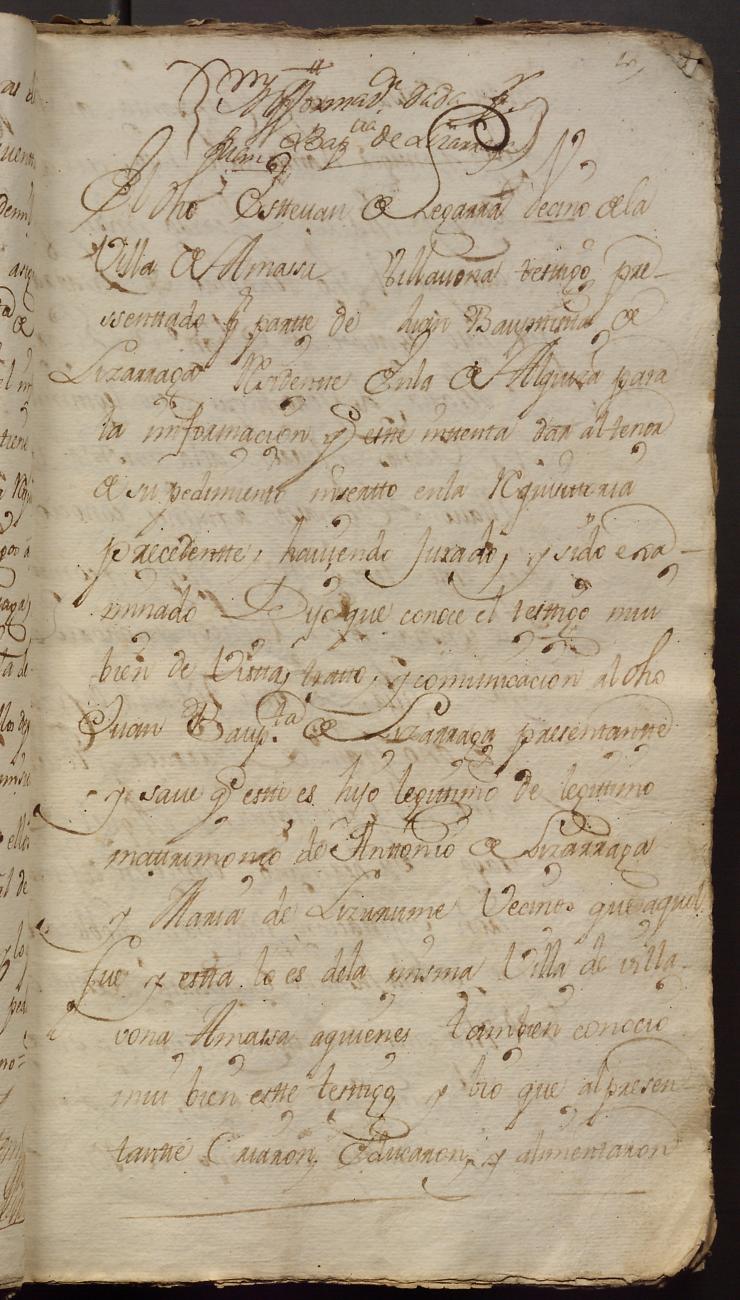 Ynformaçⁿ dada p.ʳ
Juan Bapᵗᵃ de Lizarraga
El dho Esttevan de Legarra vecino de la
Villa de Amassa Villavona testtigo pre-
ssenttado p.ʳ partte de Juan Bauptista de
Lizarraga Residentte en la de Alquiza para
la ynformacion q̃ estte inttenta dar al tenor
de su pedimiento inserto en la Requisittoria
precedentte, haviendo Jurado, y sido exa-
minado Dijo que conoce el testtigo mui
bien de Vistta, tratto, y comunicacion al dho
Juan Baup.ᵗᵃ de Lizarraga presentantte
y save q̃ estte es hijo legittimo de legittimo
mattrimonio de Anttonio de Lizarraga
y Maria de Vecinos que aquel
fue y estta lo es de la misma Villa de villa-
vona Amassa a quienes tambien conocio
mui bien estte testtigo, y vio que al presen-
tantte Criaron, Educaron, y alimentaron